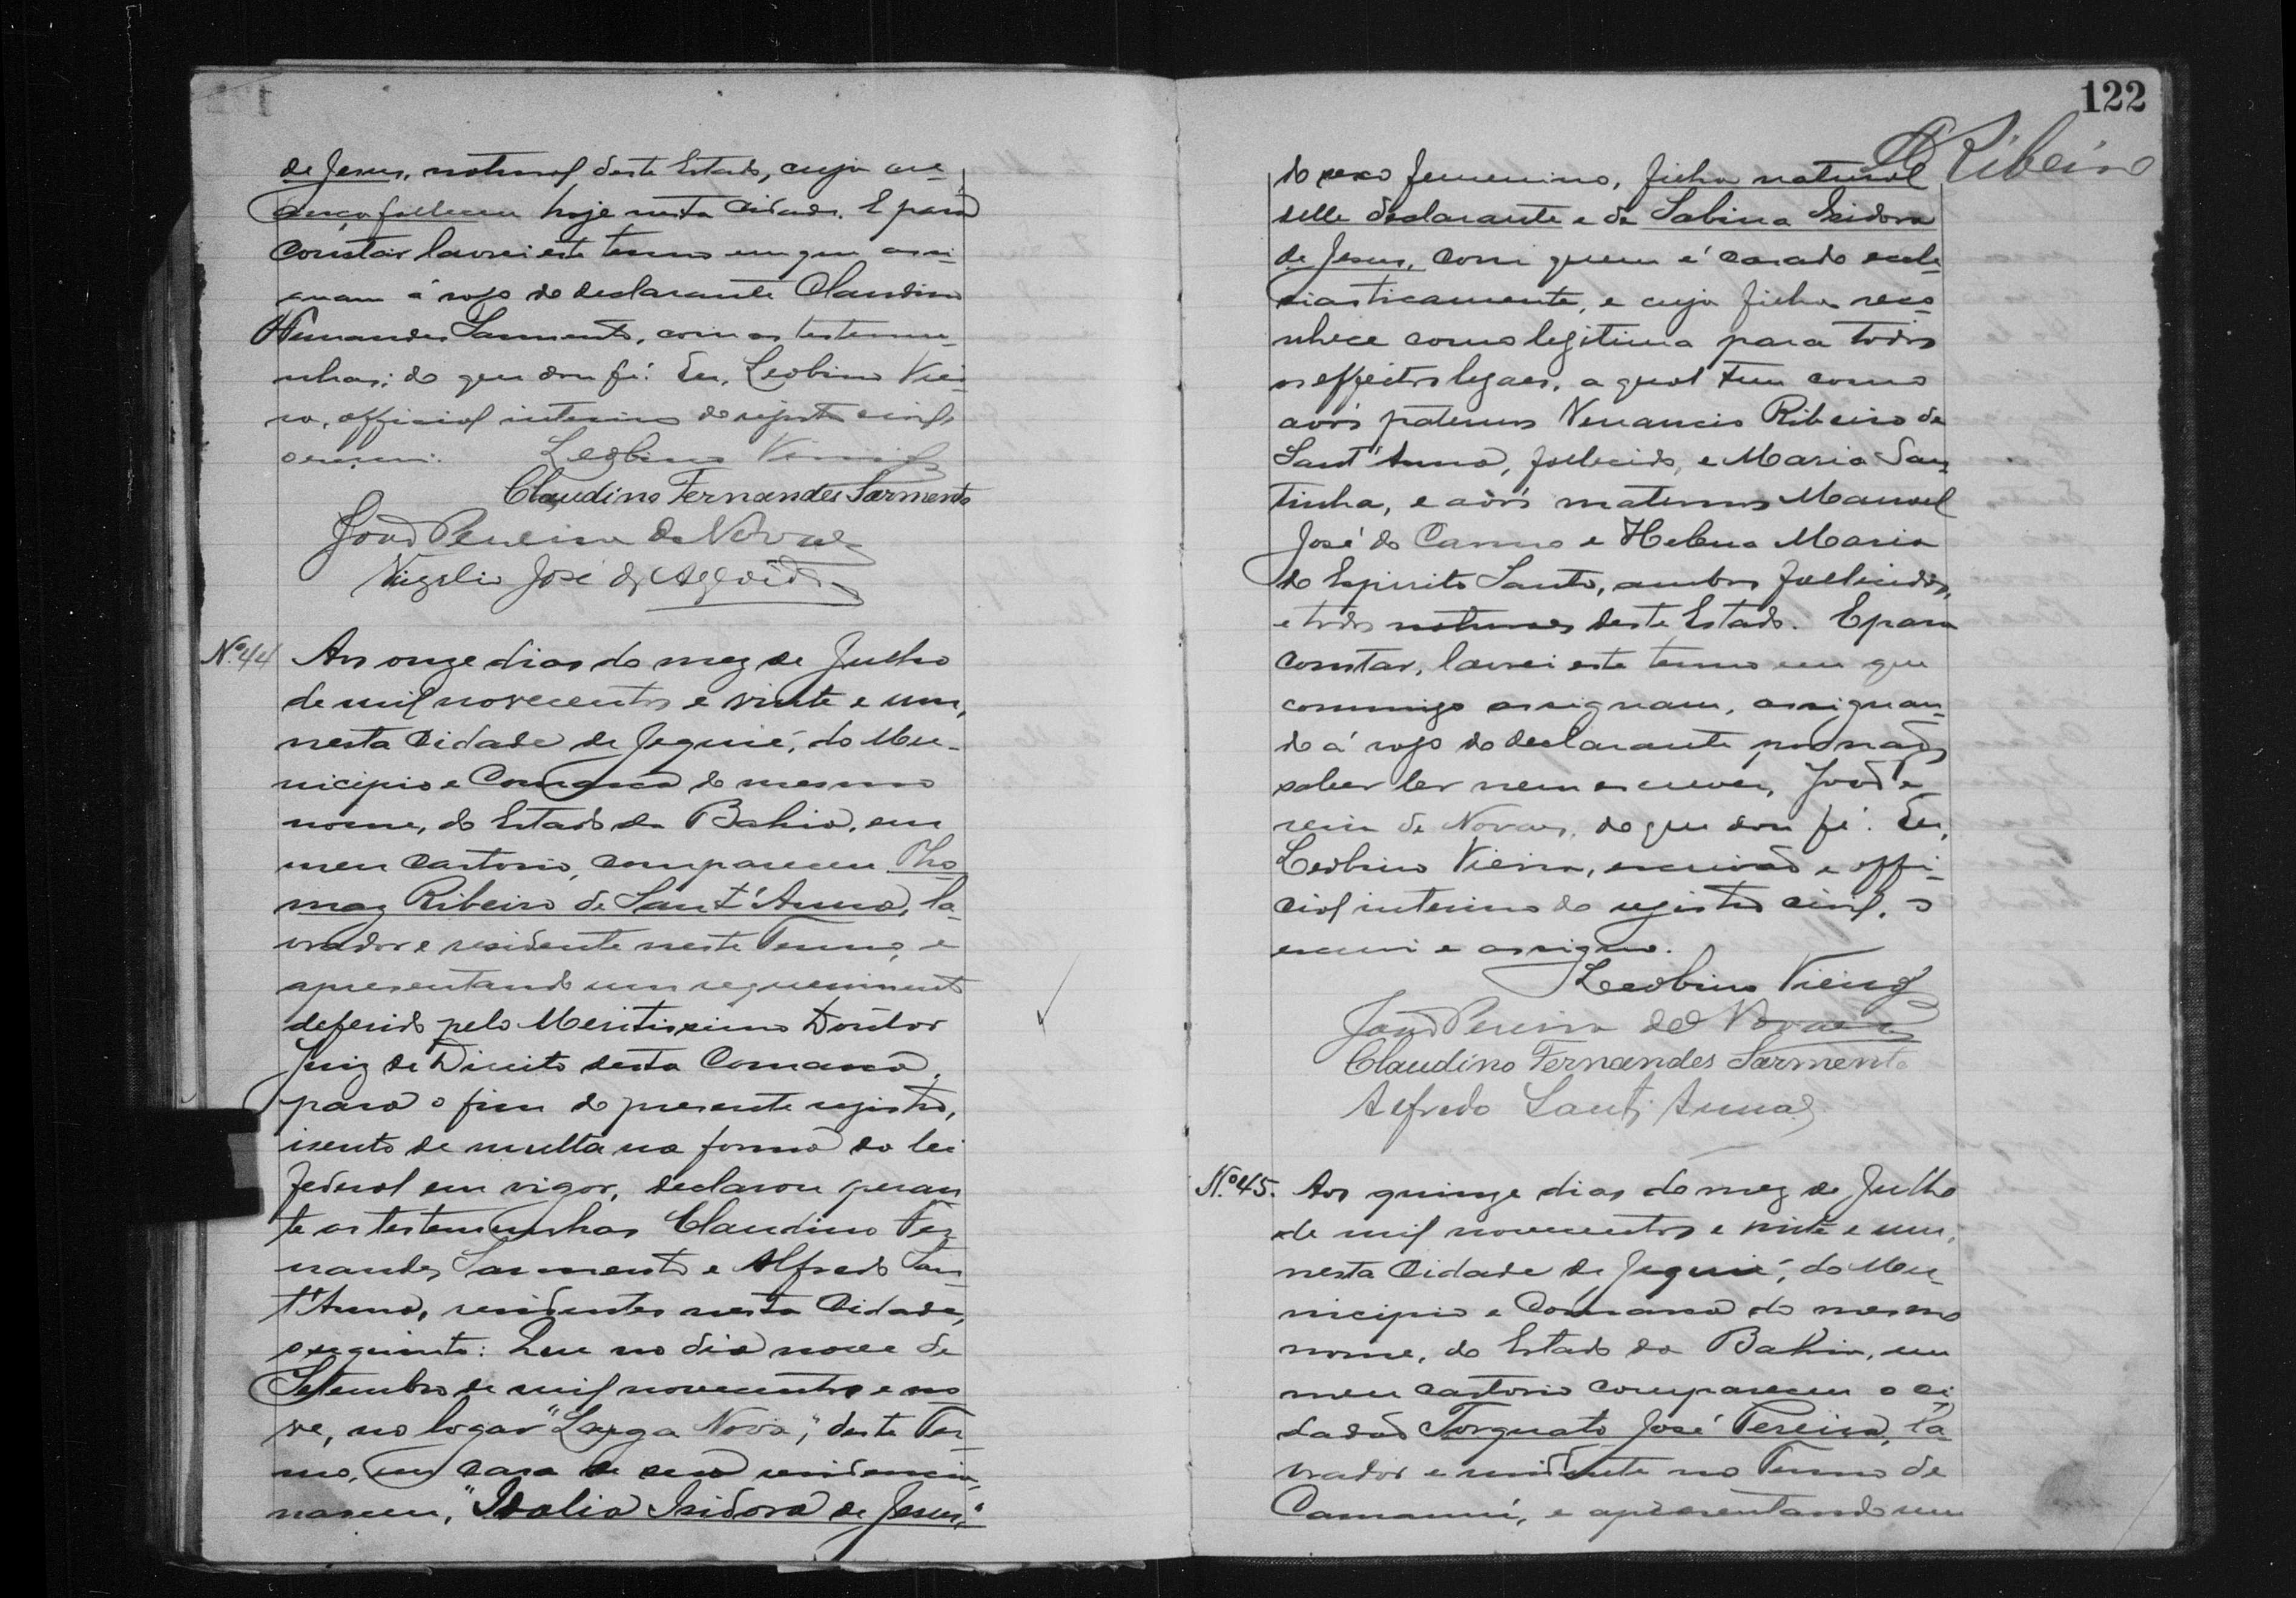 de Jesus, natural deste Estado, cuja cre-
ança falleceu hoje nesta Cidade. E para
constar lavrei este termo em que assi-
gnam á rogo do declarante Claudino
Fernandes Sarmento, com as testemu-
nhas; do que dou fé. Eu, Leobino Viei-
ra, official interino do registro civil,
o escrevi. Leobino Vieira
Claudino Fernandes Sarmento
João Pereira de Novaes
Virgilio José de
Nº 44 Aos onze dias do mez de Julho
de mil novecentos e vinte e um,
nesta Cidade de Jequié, do Mu-
nicipio e Comarca do mesmo
nome, do Estado da Bahia, em
meu Cartorio, compareceu Tho-
maz Ribeiro de Sant'Anna, la-
vrador e residente neste Termo, e
apresentando um requerimento
deferido pelo Meritissimo Doutor
Juiz de Direito desta Comarca,
para o fim do presente registro,
isento de multa na forma da lei
federal em vigor, declarou peran-
te as testemunhas Claudino Fer-
nandes Sarmento e Alfredo San-
t'Anna, residentes nesta Cidade,
o seguinte: Que no dia nove de
Setembro de mil novecentos e no-
ve, no logar "Lagoa Nova", deste Ter-
mo, em casa de sua residencia,
nasceu, "Idalia Isidora de Jesus,"
122
Ribeiro
do sexo femenino, filha natural
delle declarante e de Sabina Isidora
de Jesus, com quem é casado eccle-
siasticamente, e cuja filha reco-
nhece como legitima para todos
os effeitos legaes, a qual tem como
avós paternos Venancio Ribeiro de
Sant'Anna, fallecido, e Maria San-
tinha, e avós maternos Manoel
José do Carmo e Helena Maria
do Espirito Santo, ambos fallecidos,
e todos naturaes deste Estado. E para
constar, lavrei este termo em que
commigo assignam, assignan-
do á rogo do declarante por não
saber ler nem escrever, João Pe-
reira de Novaes, do que dou fé. Eu,
Leobino Vieira, escrivão e offi-
cial interino do registro civil, o
escrevi e assigno.
Leobino Vieira
João Pereira de Novaes
Claudino Fernandes Sarmento
Alfredo Sant'Anna
N.º 45. Aos quinze dias do mez de Julho
de mil novecentos e vinte e um,
nesta Cidade de Jequié, do Mu-
nicipio e Comarca do mesmo
nome, do Estado da Bahia, em
meu cartorio compareceu o ci-
dadão Torquato José Pereira, la-
vrador e residente no Termo de
Camamú, e apresentando um